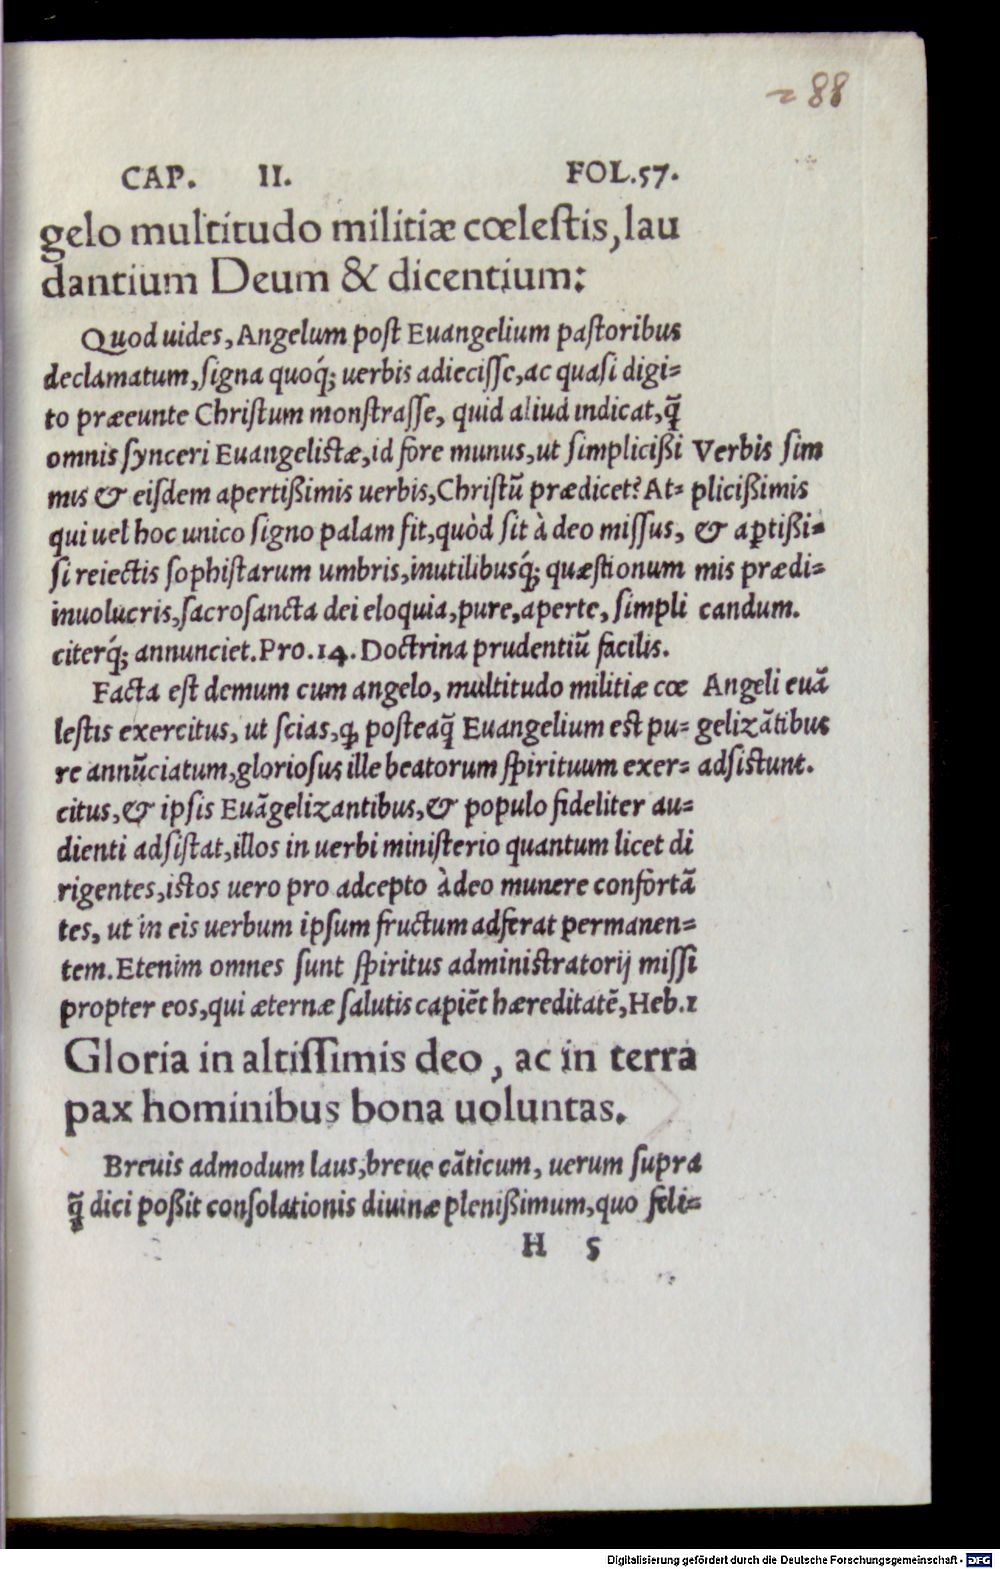 288
CAP. II. FOL.57.
gelo multitudo militiæ cœlestis, lau
dantium Deum & dicentium:
Quod uides, Angelum post Euangelium pastoribus
declamatum, signa quoq́; uerbis adiecisse, ac quasi digi=
to præeunte Christum monstrasse, quid aliud indicat, q̃
omnis synceri Euangelistæ, id fore munus, ut simplicißi
mis & eisdem apertißimis uerbis, Christũ prædicet? At=
qui uel hoc unico signo palam fit, quòd sit à deo missus,
si reiectis sophistarum umbris, inutilibusq́; quæstionum
inuolucris, sacrosancta dei eloquia, pure, aperte, simpli
citerq́; annunciet. Pro. 14. Doctrina prudentiũ facilis.
Verbis sim
plicißimis
& aptißi=
mis prædi=
candum.
Facta est demum cum angelo, multitudo militiæ cœ
lestis exercitus, ut scias, ꝙ posteaq̃ Euangelium est pu=
re annũciatum, gloriosus ille beatorum spirituum exer=
citus, & ipsis Euãgelizantibus, & populo fideliter au=
dienti adsistat, illos in uerbi ministerio quantum licet di
rigentes, istos uero pro adcepto à deo munere confortã
tes, ut in eis uerbum ipsum fructum adferat permanen=
tem. Etenim omnes sunt spiritus administratorij missi
propter eos, qui æternæ salutis capiẽt hæreditatẽ, Heb.1
Angeli euã
gelizãtibus
adsistunt.
Gloria in altissimis deo, ac in terra
pax hominibus bona uoluntas.
Breuis admodum laus, breue cãticum, uerum supra
q̃ dici poßit consolationis diuinæ plenißimum, quo feli=
H 5
Digitalisierung gefördert durch die Deutsche Forschungsgemeinschaft - DFG